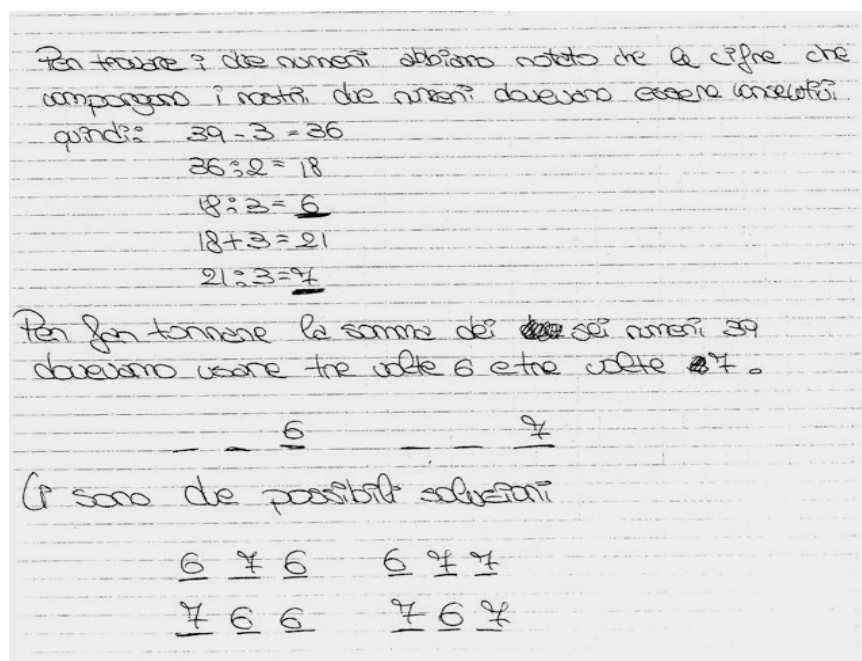 Per trovare i due numeri abbiamo notato che le cifre che
compongono i nostri due numeri dovevano essere consecutivi
quindi: 39 - 3 = 36
36 : 2 = 18
18 : 3 = 6
18 + 3 = 21
21 : 3 = 7
Per far tornare la somma dei sei numeri 39
dovevamo usare tre volte 6 e tre volte 7.
_ _ 6 _ _ 7
Ci sono due possibili soluzioni
6 7 6 6 7 7
7 6 6 7 6 7